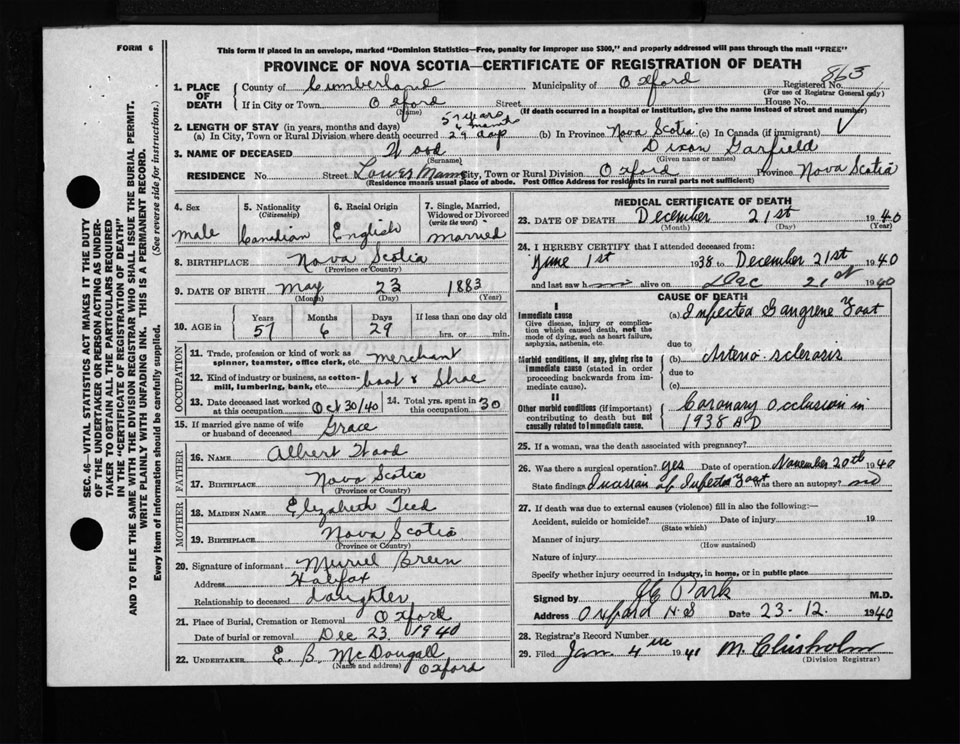 FORM 6
This form if placed in an envelope, marked "Dominion Statistics—Free, penalty for improper use $300," and properly addressed will pass through the mail "FREE"
PROVINCE OF NOVA SCOTIA—CERTIFICATE OF REGISTRATION OF DEATH
1. PLACE OF DEATH County of Cumberland Municipality of Oxford Registered No. 863
(For use of Registrar General only)
If in City or Town Oxford Street House No.
(Name) (If death occurred in a hospital or institution, give the name instead of street and number)
2. LENGTH OF STAY (in years, months and days) 57 years 6 months
(a) In City, Town or Rural Division where death occurred 29 days (b) In Province Nova Scotia (c) In Canada (if immigrant)
3. NAME OF DECEASED Wood Dixon Garfield
(Surname) (Given name or names)
RESIDENCE No. Street Lower Main City, Town or Rural Division Oxford Province Nova Scotia
(Residence means usual place of abode. Post Office Address for residents in rural parts not sufficient)
4. Sex 5. Nationality (Citizenship) 6. Racial Origin 7. Single, Married, Widowed or Divorced (write the word)
male Canadian English married
8. BIRTHPLACE Nova Scotia
(Province or Country)
9. DATE OF BIRTH May 23 1883
(Month) (Day) (Year)
10. AGE in Years Months Days If less than one day old
57 6 29 hrs. or min.
OCCUPATION
11. Trade, profession or kind of work as spinner, teamster, office clerk, etc. merchant
12. Kind of industry or business, as cotton-mill, lumbering, bank, etc. boot & Shoe
13. Date deceased last worked at this occupation Oct 30/40 14. Total yrs. spent in this occupation 30
15. If married give name of wife or husband of deceased Grace
FATHER
16. NAME Albert Wood
17. BIRTHPLACE Nova Scotia
(Province or Country)
MOTHER
18. MAIDEN NAME Elizabeth Teed
19. BIRTHPLACE Nova Scotia
(Province or Country)
20. Signature of informant Muriel Breen
Address Halifax
Relationship to deceased daughter
21. Place of Burial, Cremation or Removal Oxford
Date of burial or removal Dec 23 1940
22. UNDERTAKER E. B. McDougall
(Name and address) Oxford
MEDICAL CERTIFICATE OF DEATH
23. DATE OF DEATH December 21st 1940
(Month) (Day) (Year)
24. I HEREBY CERTIFY that I attended deceased from:
June 1st 1938 to December 21st 1940
and last saw h im alive on Dec 21st 1940
CAUSE OF DEATH
I
Immediate cause (a) Infected Gangrene Foot
Give disease, injury or complication which caused death, not the mode of dying, such as heart failure, asphyxia, asthenia, etc.
due to
Morbid conditions, if any, giving rise to immediate cause (stated in order proceeding backwards from immediate cause).
(b) Arterio-sclerosis
due to
(c)
II
Other morbid conditions (if important) contributing to death but not causally related to immediate cause.
Coronary Occlusion in
1938 AD
25. If a woman, was the death associated with pregnancy?
26. Was there a surgical operation? yes Date of operation November 20th 1940
State findings Incision of Infected Foot Was there an autopsy? no
27. If death was due to external causes (violence) fill in also the following:—
Accident, suicide or homicide? Date of injury 19
(State which)
Manner of injury
(How sustained)
Nature of injury
Specify whether injury occurred in industry, in home, or in public place
Signed by Park M.D.
Address Oxford N.S Date 23-12. 1940
28. Registrar's Record Number
29. Filed Jan. 4th 1941 M Chisholm
(Division Registrar)
SEC. 46—VITAL STATISTICS ACT MAKES IT THE DUTY
OF THE UNDERTAKER OR PERSON ACTING AS UNDER-
TAKER TO OBTAIN ALL THE PARTICULARS REQUIRED
IN THE "CERTIFICATE OF REGISTRATION OF DEATH"
AND TO FILE THE SAME WITH THE DIVISION REGISTRAR WHO SHALL ISSUE THE BURIAL PERMIT.
WRITE PLAINLY WITH UNFADING INK. THIS IS A PERMANENT RECORD.
Every item of information should be carefully supplied. (See reverse side for instructions.)